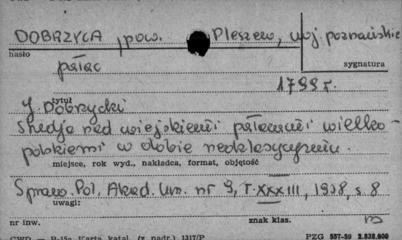 DOBRZYCA, pow. Pleszew, woj. poznańskie
hasło
pałac
sygnatura
1799 r.
tytuł
J. Dobrzycki
Studja nad wiejskiemi pałacami wielko-
polskiemi w dobie neoklasycyzmu.
miejsce, rok wyd., nakładca, format, objętość
Spraw. Pol. Akad. Um. nr 9, T. XXXIII, 1928, s. 8
uwagi:
nr inw.
znak klas.
Karta katal. (z nadr.) 1317/P
PZG 557-59 2.838.600